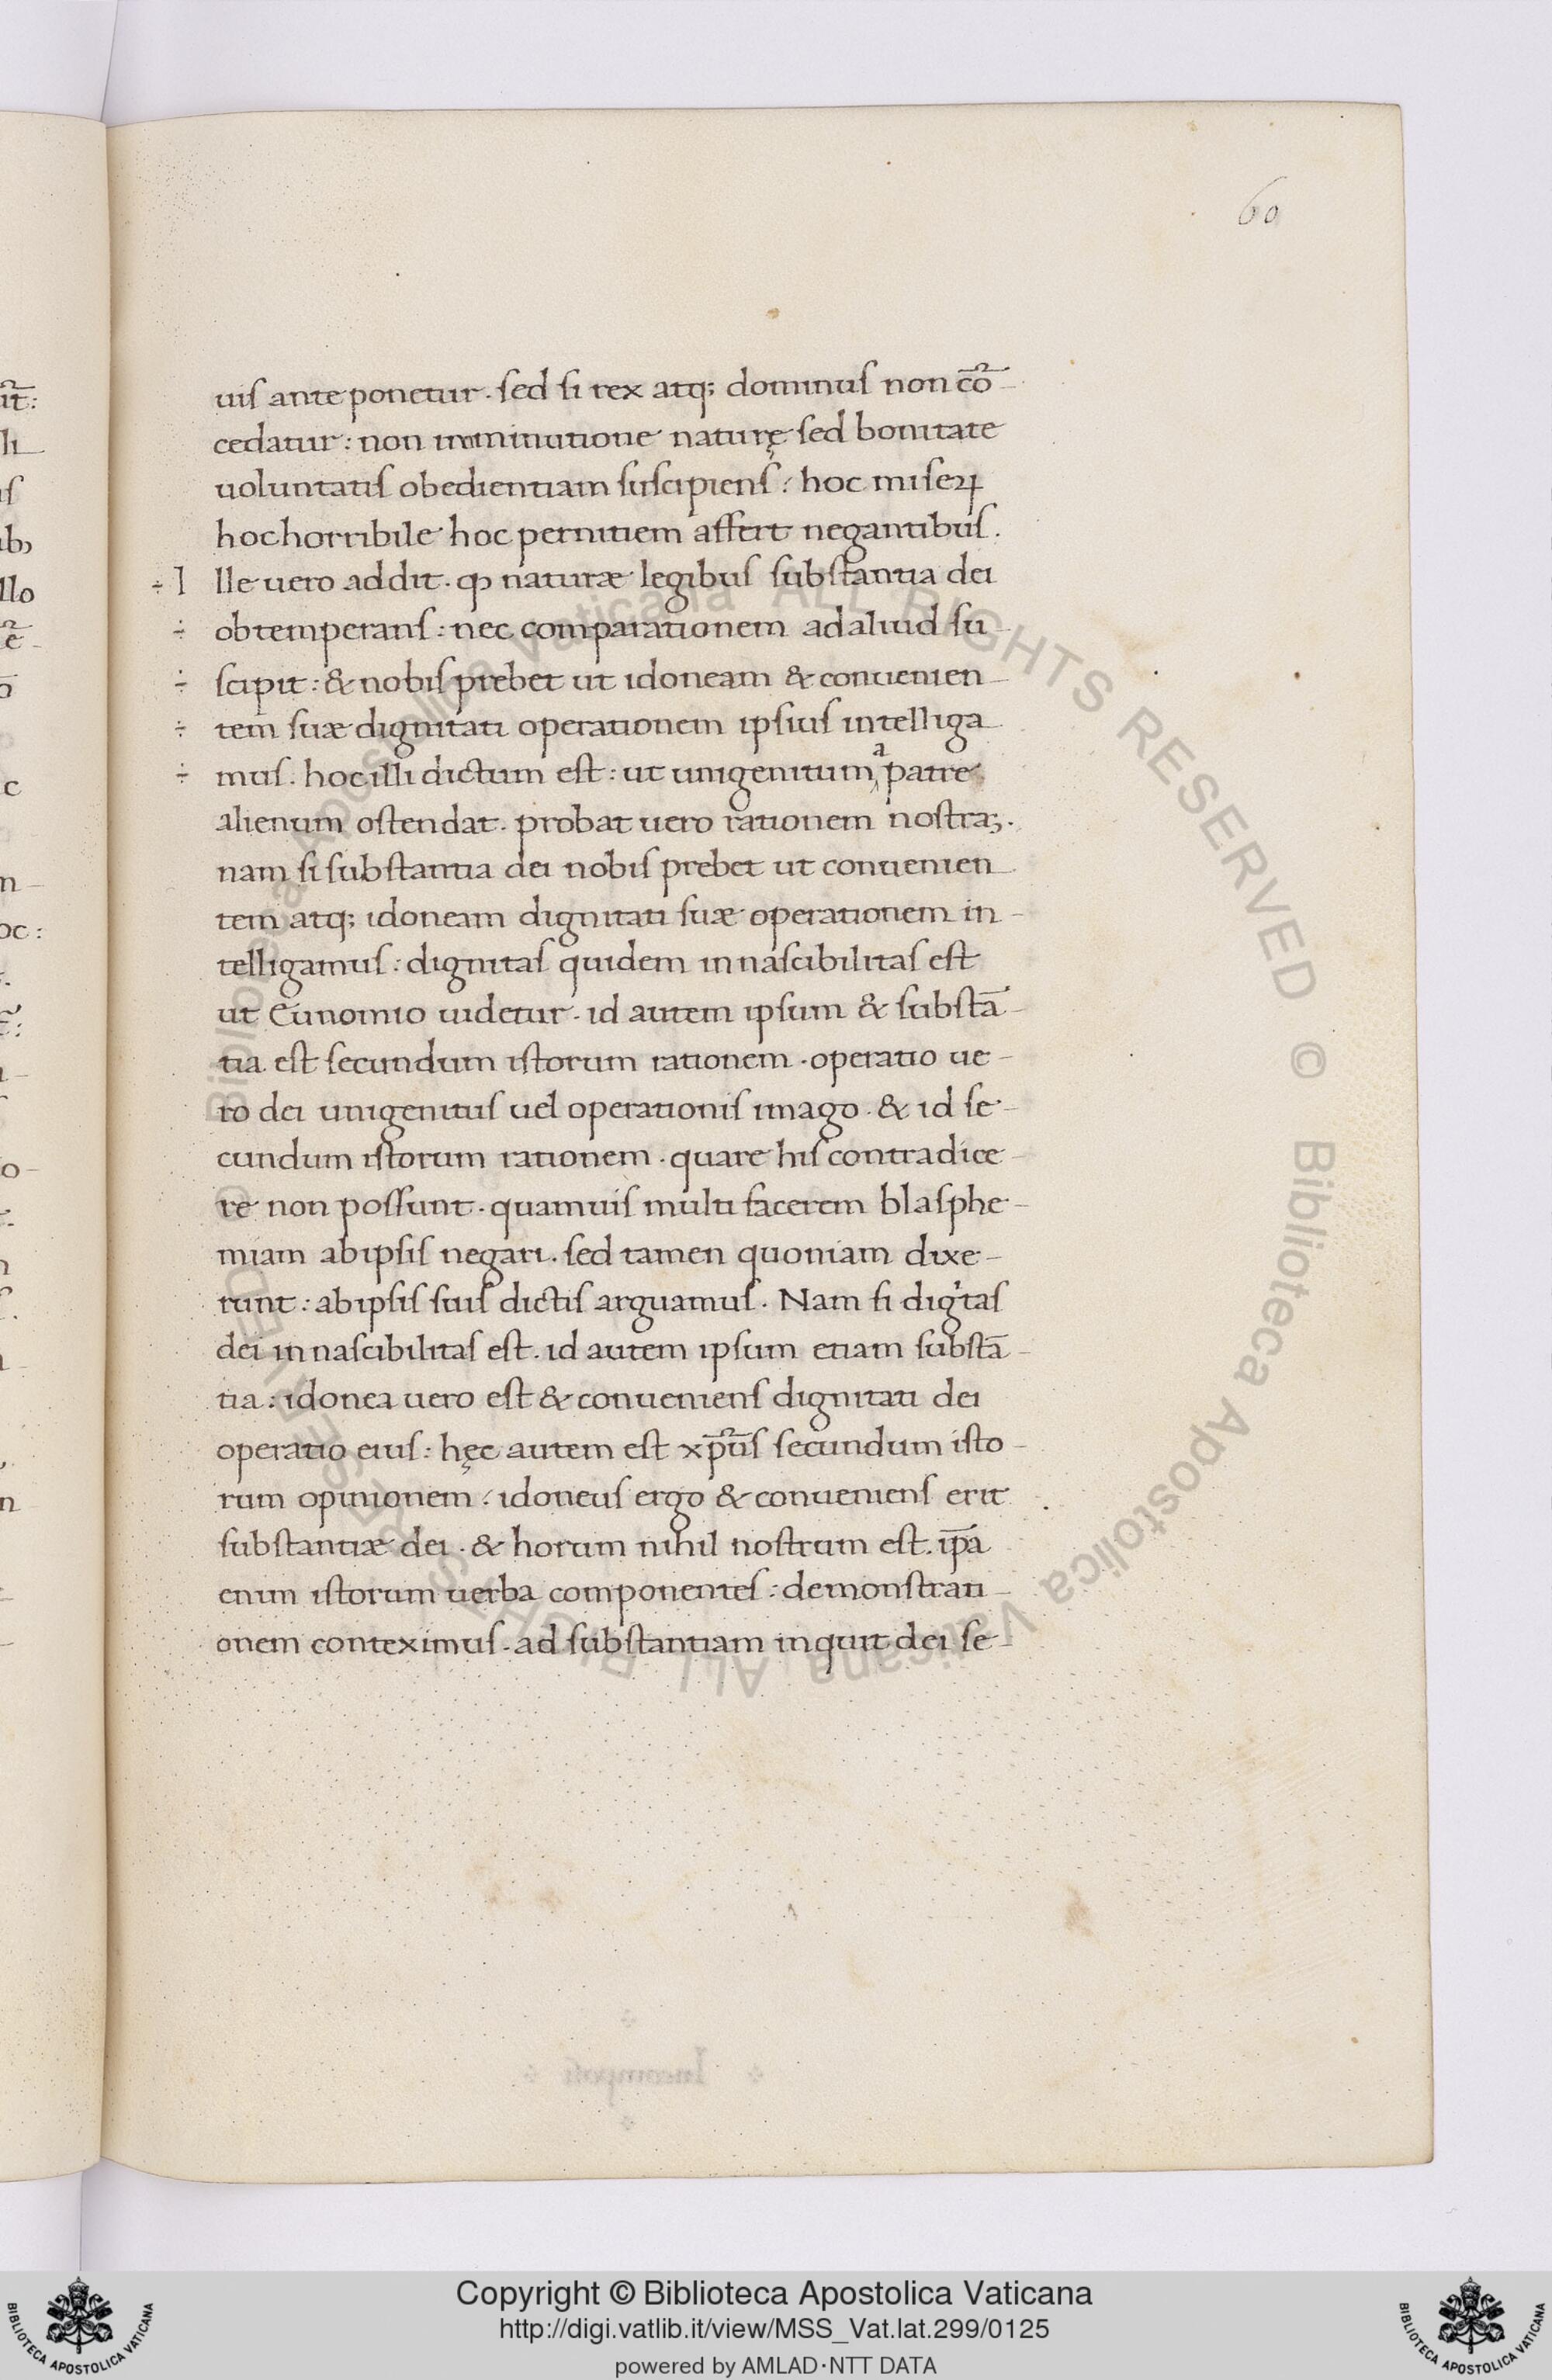 60
uiſ ante ponetur . ſed ſi rex atq; dominuſ non co᷒̄-
cedatur : non imminutione naturę ſed bonitate
uoluntatiſ obedientiam ſuſcipienſ : hoc miſeꝝ
hoc horribile hoc pernitiem affert negantibuſ .
÷ I lle uero addit . ꝙ naturæ legibuſ ſubſtantia dei
÷ obtemperanſ : nec comparationem ad aliud ſu-
÷ ſcipit : & nobiſ prebet ut idoneam & conuenien-
÷ tem ſuæ dignitati operationem ipſiuſ intelliga-
÷ muſ . hoc illi dictum eſt : ut unigenitum a patre
alienum oſtendat . probat uero rationem noſtraꝫ .
nam ſi ſubſtantia dei nobiſ prebet ut conuenien-
tem atq; idoneam dignitati ſuæ operationem in-
telligamuſ : dignitaſ quidem innaſcibilitaſ eſt
ut Eunomio uidetur . id autem ipſum & ſubſtā-
tia eſt ſecundum iſtorum rationem . operatio ue-
ro dei unigenituſ uel operationiſ imago . & id ſe-
cundum iſtorum rationem . quare hiſ contradice-
re non poſſunt . quamuiſ multi facerem blaſphe-
miam ab ipſiſ negari . ſed tamen quoniam dixe-
runt : ab ipſiſ ſuiſ dictiſ arguamuſ . Nam ſi digͥtaſ
dei innaſcibilitaſ eſt . id autem ipſum etiam ſubſtā-
tia : idonea uero eſt & conuenienſ dignitati dei
operatio eiuſ : hęc autem eſt xp̄uſ ſecundum iſto-
rum opinionem : idoneuſ ergo & conuenienſ erit
ſubſtantiæ dei . & horum nihil noſtrum eſt . ip̄a
enim iſtorum uerba componenteſ : demonſtrati-
onem conteximuſ . ad ſubſtantiam inquit dei ſe-
Copyright © Biblioteca Apostolica Vaticana
http://digi.vatlib.it/view/MSS_Vat.lat.299/0125
powered by AMLAD·NTT DATA
BIBLIOTECA APOSTOLICA VATICANA
BIBLIOTECA APOSTOLICA VATICANA
© Biblioteca Apostolica Vaticana ALL RIGHTS RESERVED
© Biblioteca Apostolica Vaticana ALL RIGHTS RESERVED